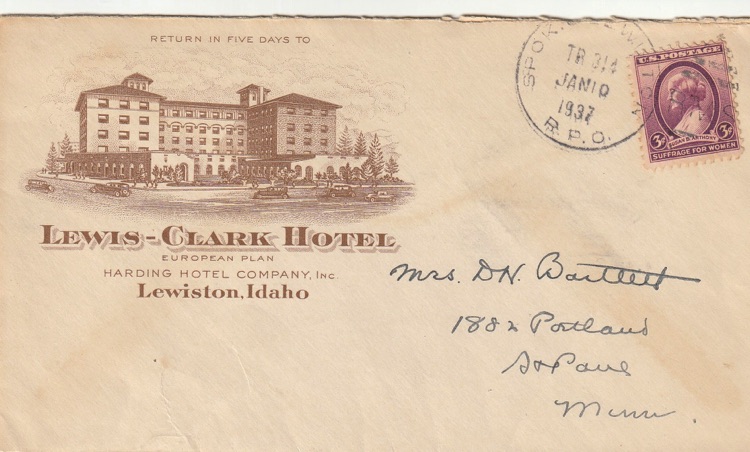 RETURN IN FIVE DAYS TO
LEWIS-CLARK HOTEL
EUROPEAN PLAN
HARDING HOTEL COMPANY, Inc.
Lewiston, Idaho
TR 314
JAN 10
1937
R.P.O.
U.S. POSTAGE
3¢ 3¢
SUSAN B. ANTHONY
SUFFRAGE FOR WOMEN
Mrs. D.N. Bartlett
1882 Portland
St Paul
Minn